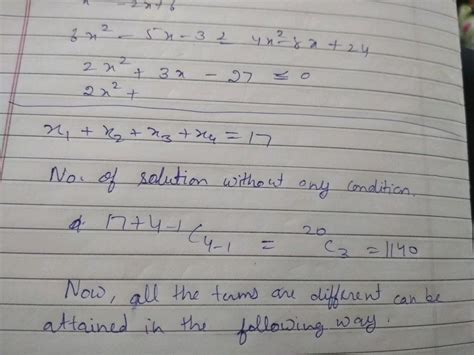 3x² - 5x - 3 ≥ 4x² - 8x + 24
2x² + 3x - 27 ≤ 0
2x² +
x₁ + x₂ + x₃ + x₄ = 17
No. of solution without any condition.
17+4-1C4-1 = 20C3 = 1140
Now, all the terms are different can be
attained in the following way.